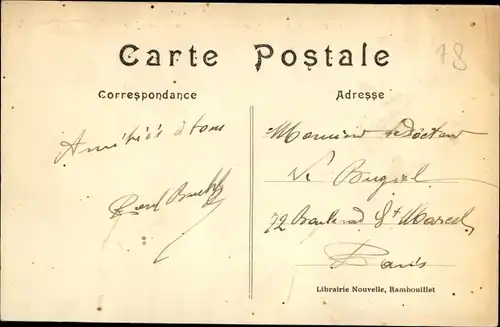 Carte Postale
78
Correspondance
Adresse
Amitiés à tous
Monsieur le Docteur
Le
72 Boulevard St Marcel
Paris
Librairie Nouvelle, Rambouillet